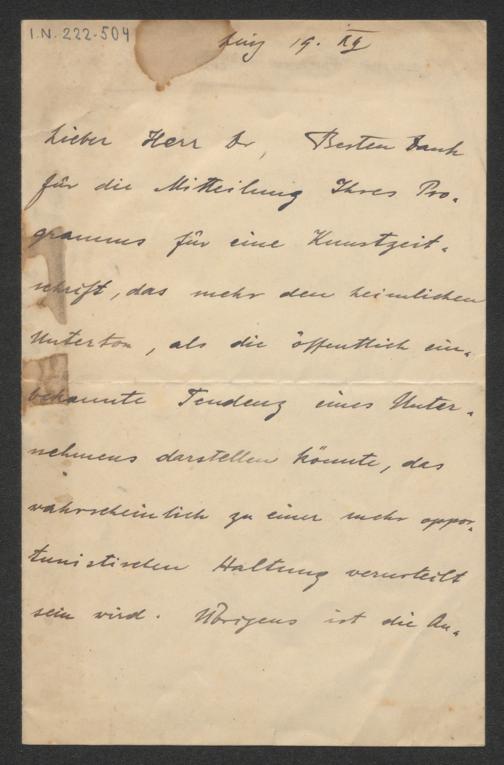 I.N. 222.504
Linz 19. XII
Lieber Herr Dr, Besten Dank
für die Mitteilung Ihres Pro-
gramms für eine Kunstzeit-
schrift, das mehr den heimlichen
Unterton, als die öffentlich ein-
bekannte Tendenz eines Unter-
nehmens darstellen könnte, das
wahrscheinlich zu einer mehr oppor-
tunistischen Haltung verurteilt
sein wird. Übrigens ist die An-